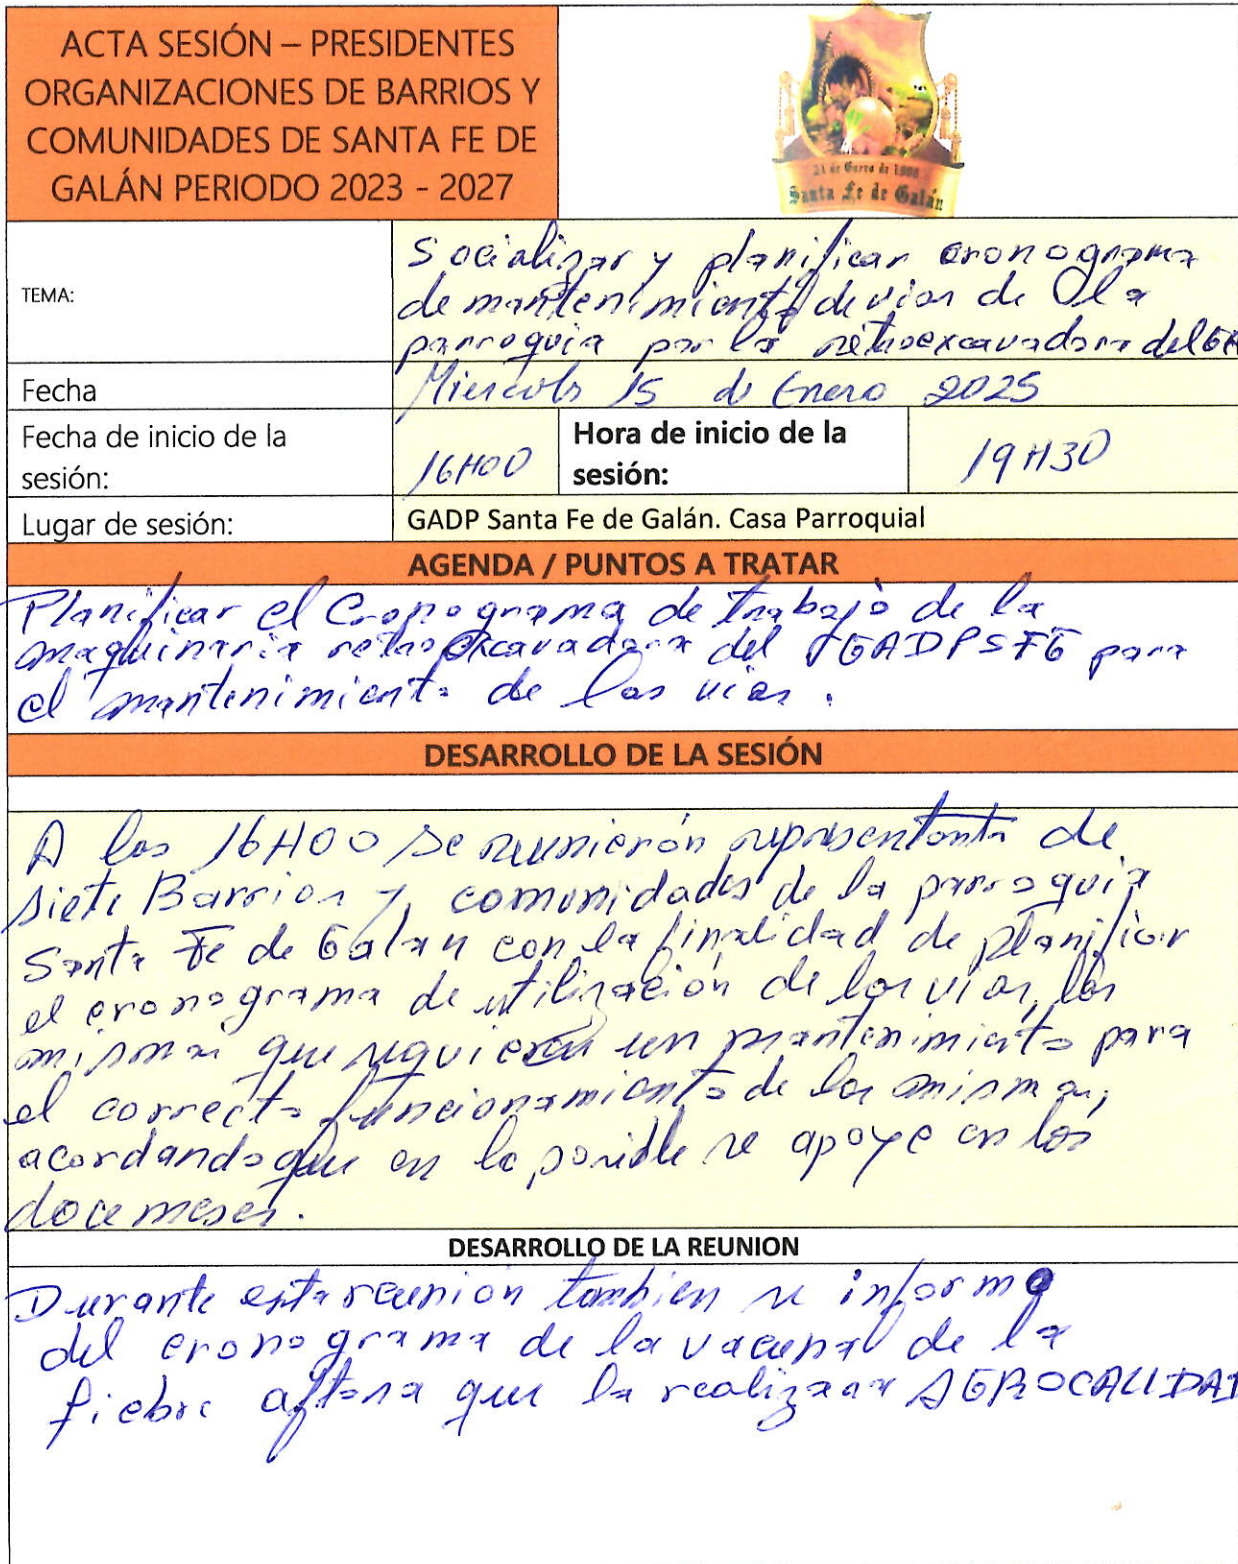 ACTA SESIÓN – PRESIDENTES
ORGANIZACIONES DE BARRIOS Y
COMUNIDADES DE SANTA FE DE
GALÁN PERIODO 2023 - 2027
21 de Enero de
Santa Fe de Galán
TEMA:
Socializar y planificar cronograma
de mantenimiento de vias de la
parroquia por la retroexcavadora del GA
Fecha
Miercols 15 de Enero 2025
Fecha de inicio de la
sesión:
16H00
Hora de inicio de la
sesión:
19H30
Lugar de sesión:
GADP Santa Fe de Galán. Casa Parroquial
AGENDA / PUNTOS A TRATAR
Planificar el Cronograma de trabajo de la
maquinaria retroexcavadora del GADPSFG para
el mantenimiento de las vias.
DESARROLLO DE LA SESIÓN
A las 16H00 se reunierón representants de
siete Barrios y comunidades de la parroquia
Santa Fe de Galan con la finalidad de planificar
el cronograma de utilización de las vias, las
mismas que requieren un mantenimiento para
el correcto funcionamiento de las mismas,
acordando que en lo posible se apoye en los
doce meses.
DESARROLLO DE LA REUNION
Durante esta reunión tambien se informo
del cronograma de la vacuna de la
fiebre aftosa que la realizara AGROCALIDAD